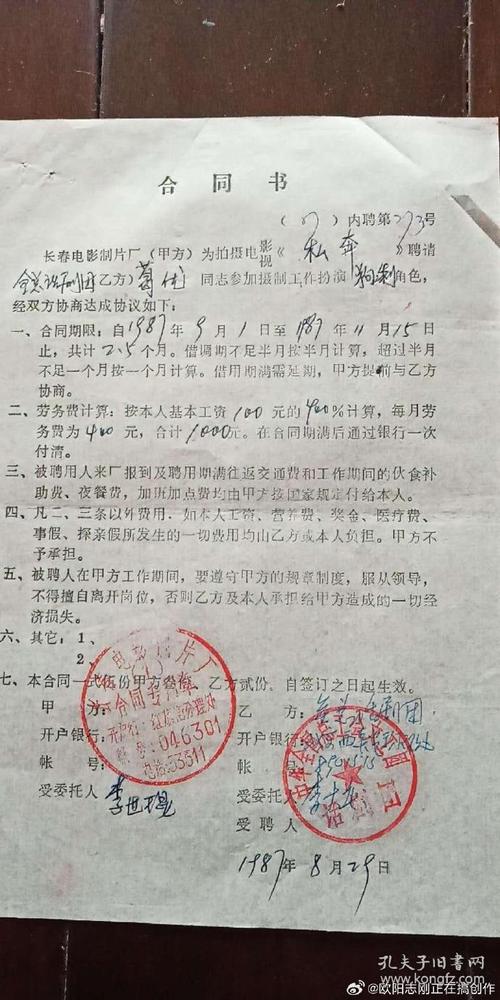 合同书
(87)内聘第273号
长春电影制片厂(甲方)为拍摄电影视《私奔》聘请
全总话剧团(乙方)葛优同志参加摄制工作扮演狗剩角色,
经双方协商达成协议如下:
一、合同期限:自1987年9月1日至1987年11月15日
止,共计2.5个月。借调期不足半月按半月计算,超过半月
不足一个月按一个月计算。借用期满需延期,甲方提前与乙方
协商。
二、劳务费计算:按本人基本工资100元的400%计算,每月劳
务费为400元,合计1000元。在合同期满后通过银行一次
付清。
三、被聘用人来厂报到及聘用期满往返交通费和工作期间的伙食补
助费、夜餐费,加班加点费均由甲方按国家规定付给本人。
四、凡二、三条以外费用,如本人工资、营养费、奖金、医疗费、
事假、探亲假所发生的一切费用均由乙方或本人负担。甲方不
予承担。
五、被聘人在甲方工作期间,要遵守甲方的规章制度,服从领导,
不得擅自离开岗位,否则乙方及本人承担给甲方造成的一切经
济损失。
六、其它:1、
2、
七、本合同一式伍份甲方叁份,乙方贰份,自签订之日起生效。
甲方:
乙方:全总话剧团
开户银行:
开户银行:
帐号:
帐号:
受委托人 李世琨
受委托人
受聘人
合同专用章
046301
电话:53311
话剧团
1987年8月29日
孔夫子旧书网
@欧阳志刚正在搞创作